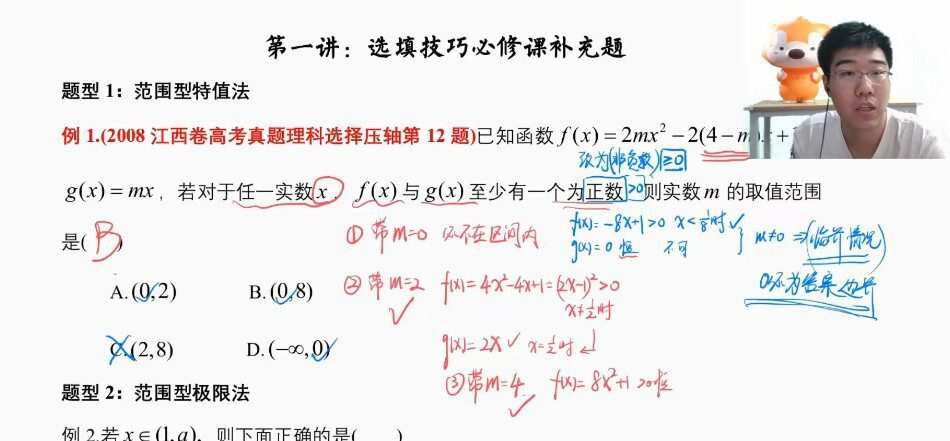 第一讲：选填技巧必修课补充题
题型 1：范围型特值法
例 1.(2008 江西卷高考真题理科选择压轴第 12 题)已知函数 f(x) = 2mx² − 2(4 − m)x +
改为(非负数) ≥0
g(x) = mx，若对于任一实数 x，f(x) 与 g(x) 至少有一个为正数 >0 则实数 m 的取值范围
是( B )
① 带m=0 必不在区间内
f(x)=-8x+1>0 x<1/8时✓
g(x)=0 恒 不可
m≠0 ⇒ 临界情况
0必为答案边界
A. (0,2) B. (0,8)
② 带m=2 f(x)=4x²-4x+1=(2x-1)²>0
x≠1/2时
✓
C. (2,8) D. (−∞,0)
g(x)=2x ✓ x=1/2时
③ 带m=4 f(x)=8x²+1>0恒
✓
题型 2：范围型极限法
例 2.若 x∈(1,a)，则下面正确的是( )